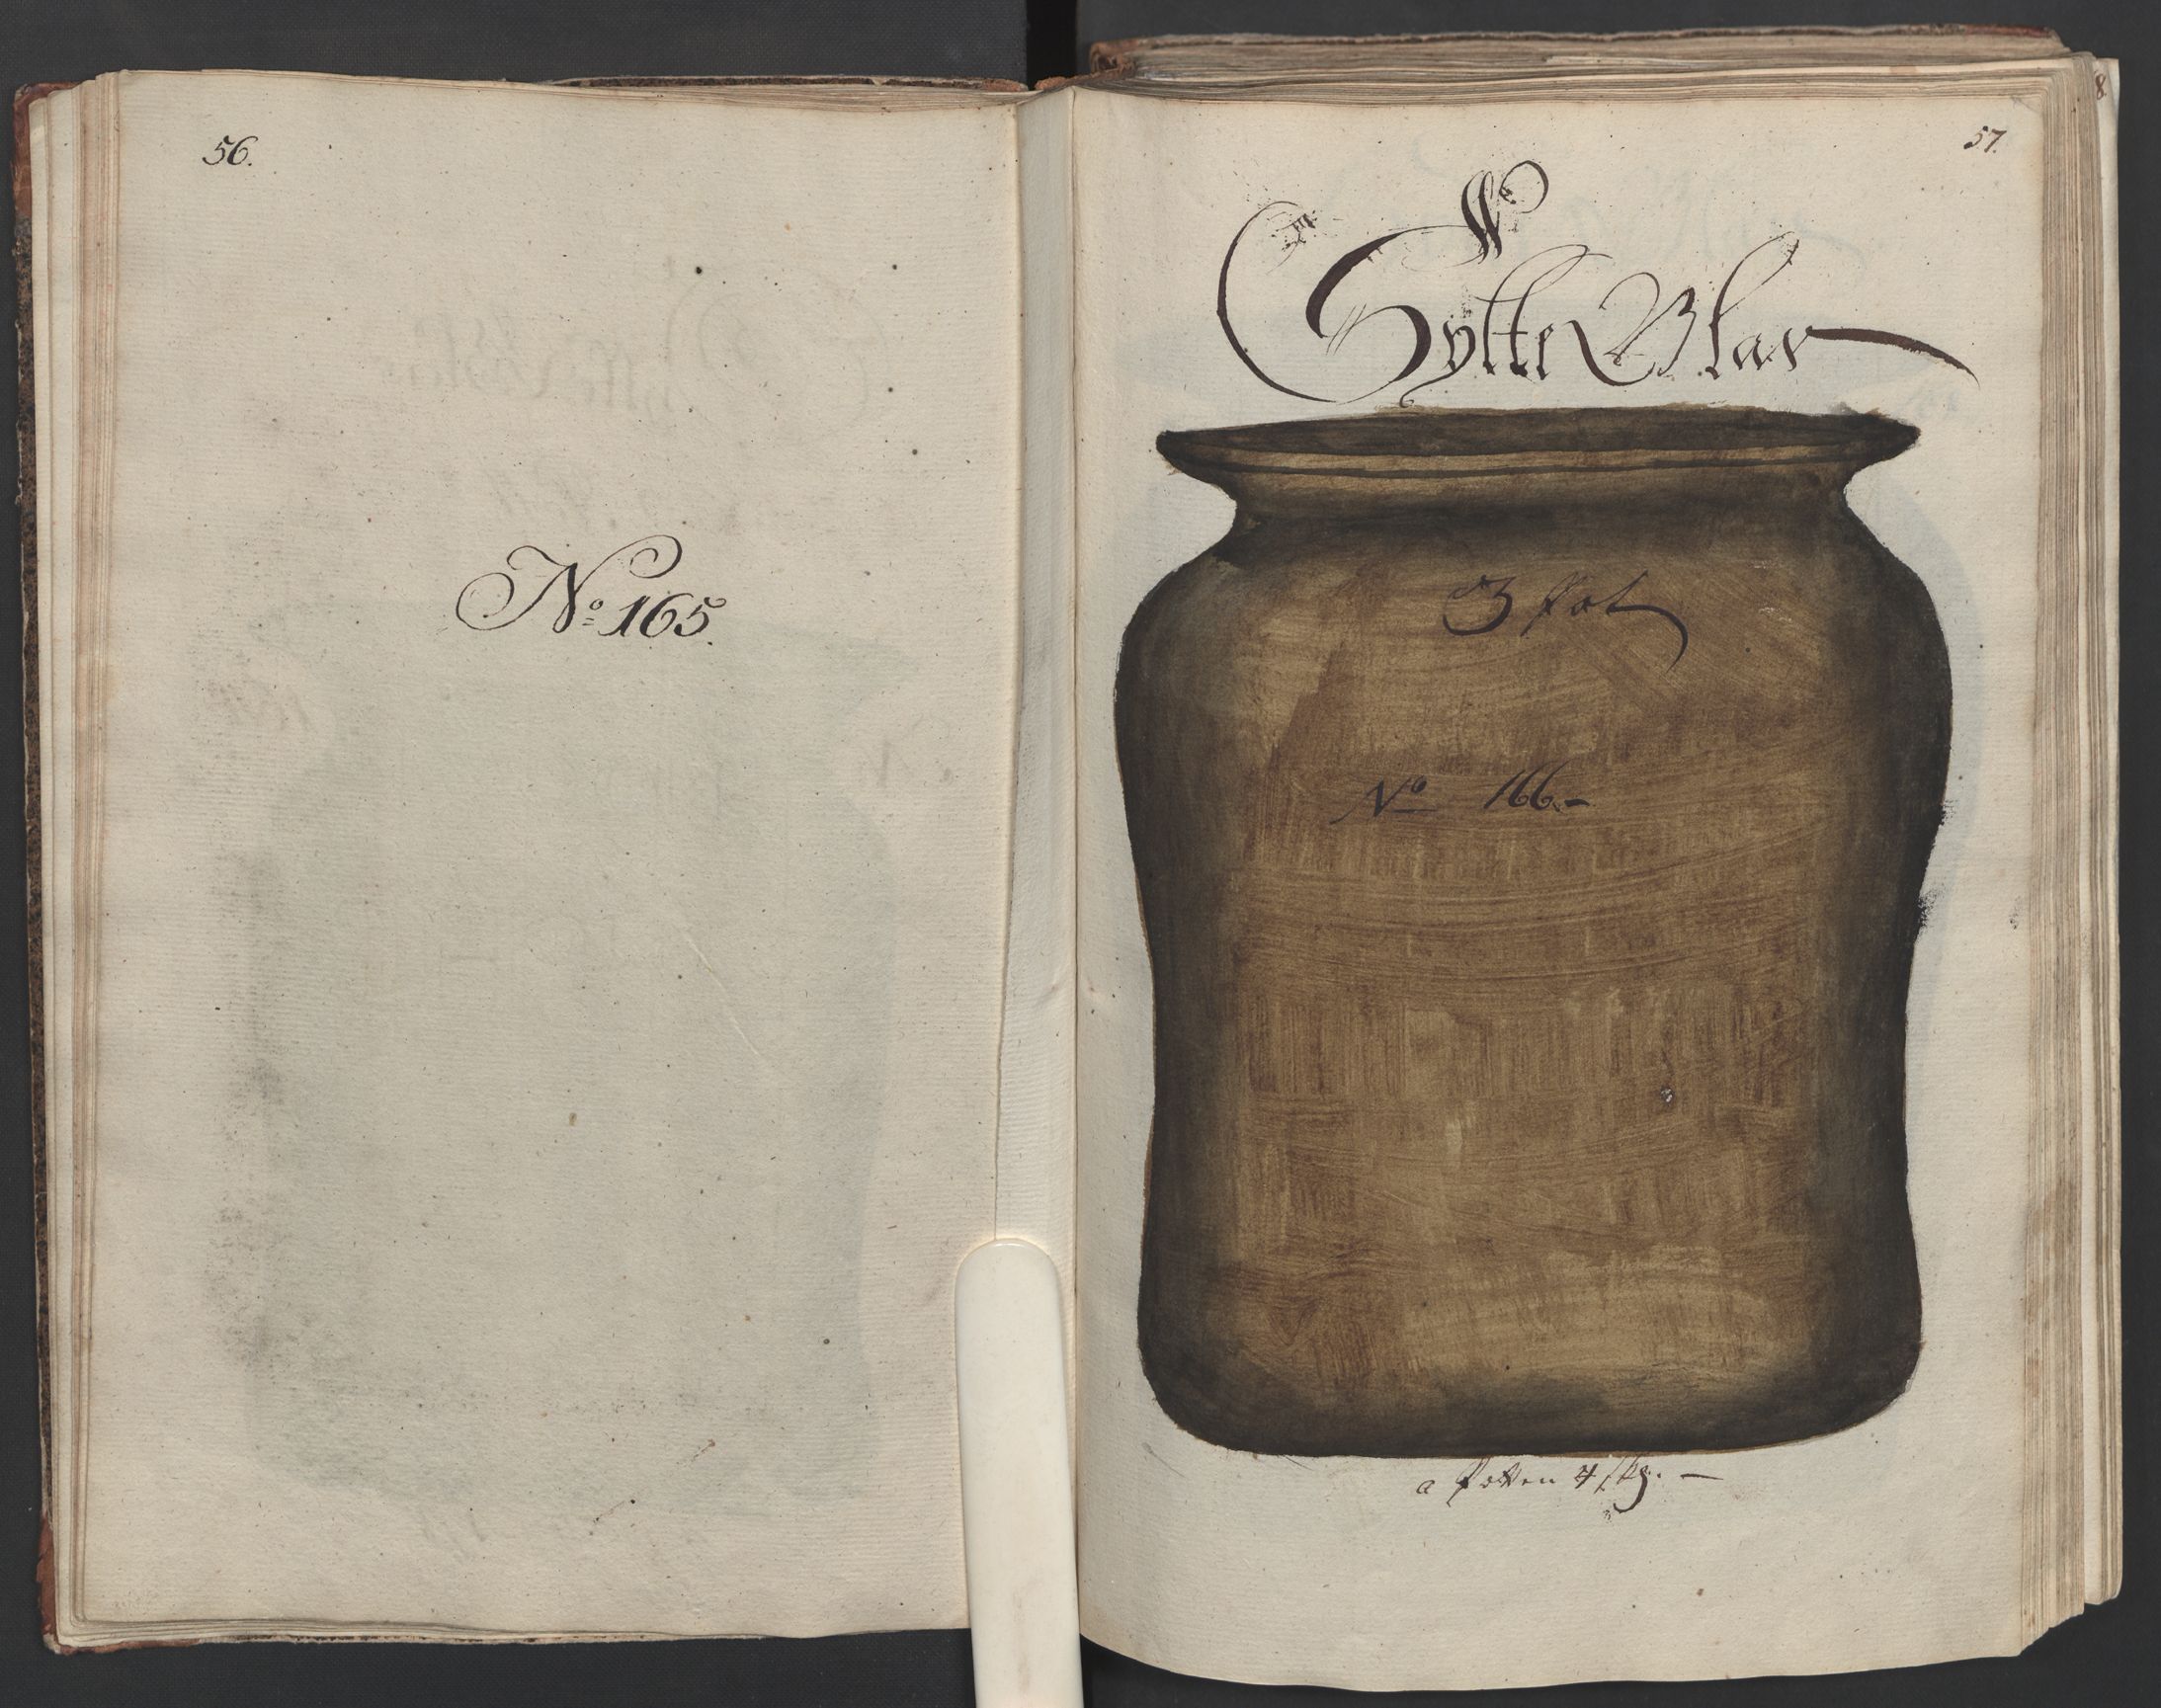 56.
No 165.
57.
Sylte Glas
3 Pot
No 166.-
a Potten 4 skg. —
8